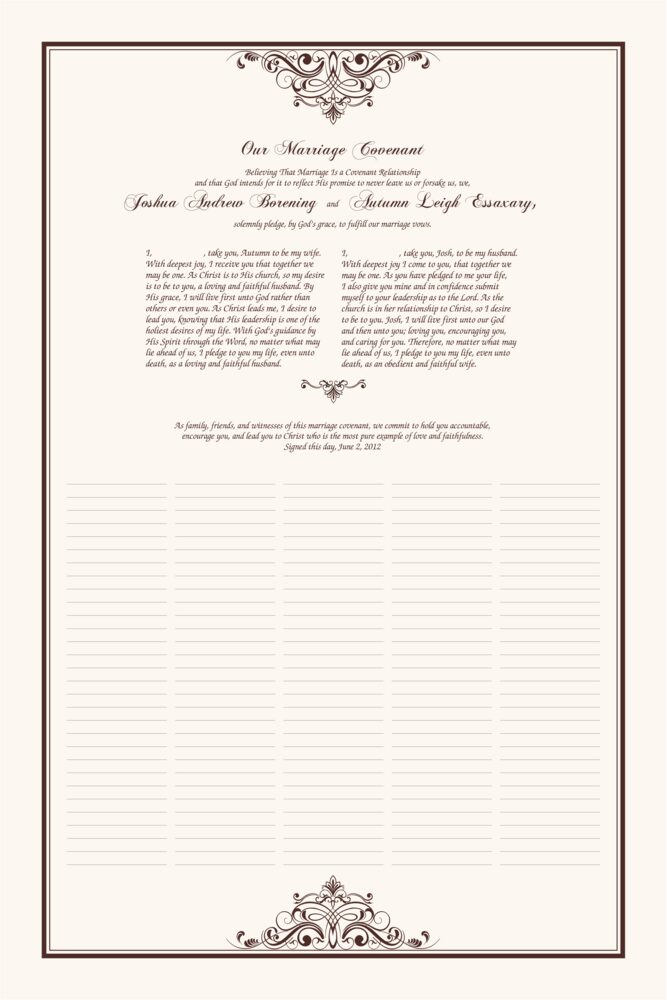 Our Marriage Covenant
Believing That Marriage Is a Covenant Relationship
and that God intends for it to reflect His promise to never leave us or forsake us, we,
Joshua Andrew Borening and Autumn Leigh Essaxary,
solemnly pledge, by God's grace, to fulfill our marriage vows.
I, , take you, Autumn to be my wife.
With deepest joy, I receive you that together we
may be one. As Christ is to His church, so my desire
is to be to you, a loving and faithful husband. By
His grace, I will live first unto God rather than
others or even you. As Christ leads me, I desire to
lead you, knowing that His leadership is one of the
holiest desires of my life. With God's guidance by
His Spirit through the Word, no matter what may
lie ahead of us, I pledge to you my life, even unto
death, as a loving and faithful husband.
I, , take you, Josh, to be my husband.
With deepest joy I come to you, that together we
may be one. As you have pledged to me your life,
I also give you mine and in confidence submit
myself to your leadership as to the Lord. As the
church is in her relationship to Christ, so I desire
to be to you. Josh, I will live first unto our God
and then unto you; loving you, encouraging you,
and caring for you. Therefore, no matter what may
lie ahead of us, I pledge to you my life, even unto
death, as an obedient and faithful wife.
As family, friends, and witnesses of this marriage covenant, we commit to hold you accountable,
encourage you, and lead you to Christ who is the most pure example of love and faithfulness.
Signed this day, June 2, 2012